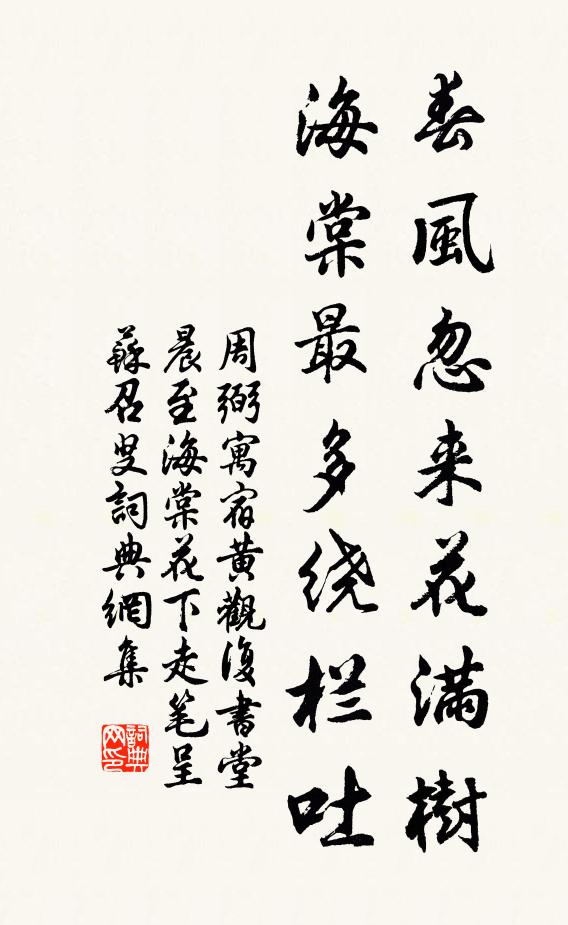 春風忽来花满樹
海棠最多绕栏吐
周弼寓宿黄觀復書堂
晨至海棠花下走笔呈
蘇召叟詞典網集
詞典
网印